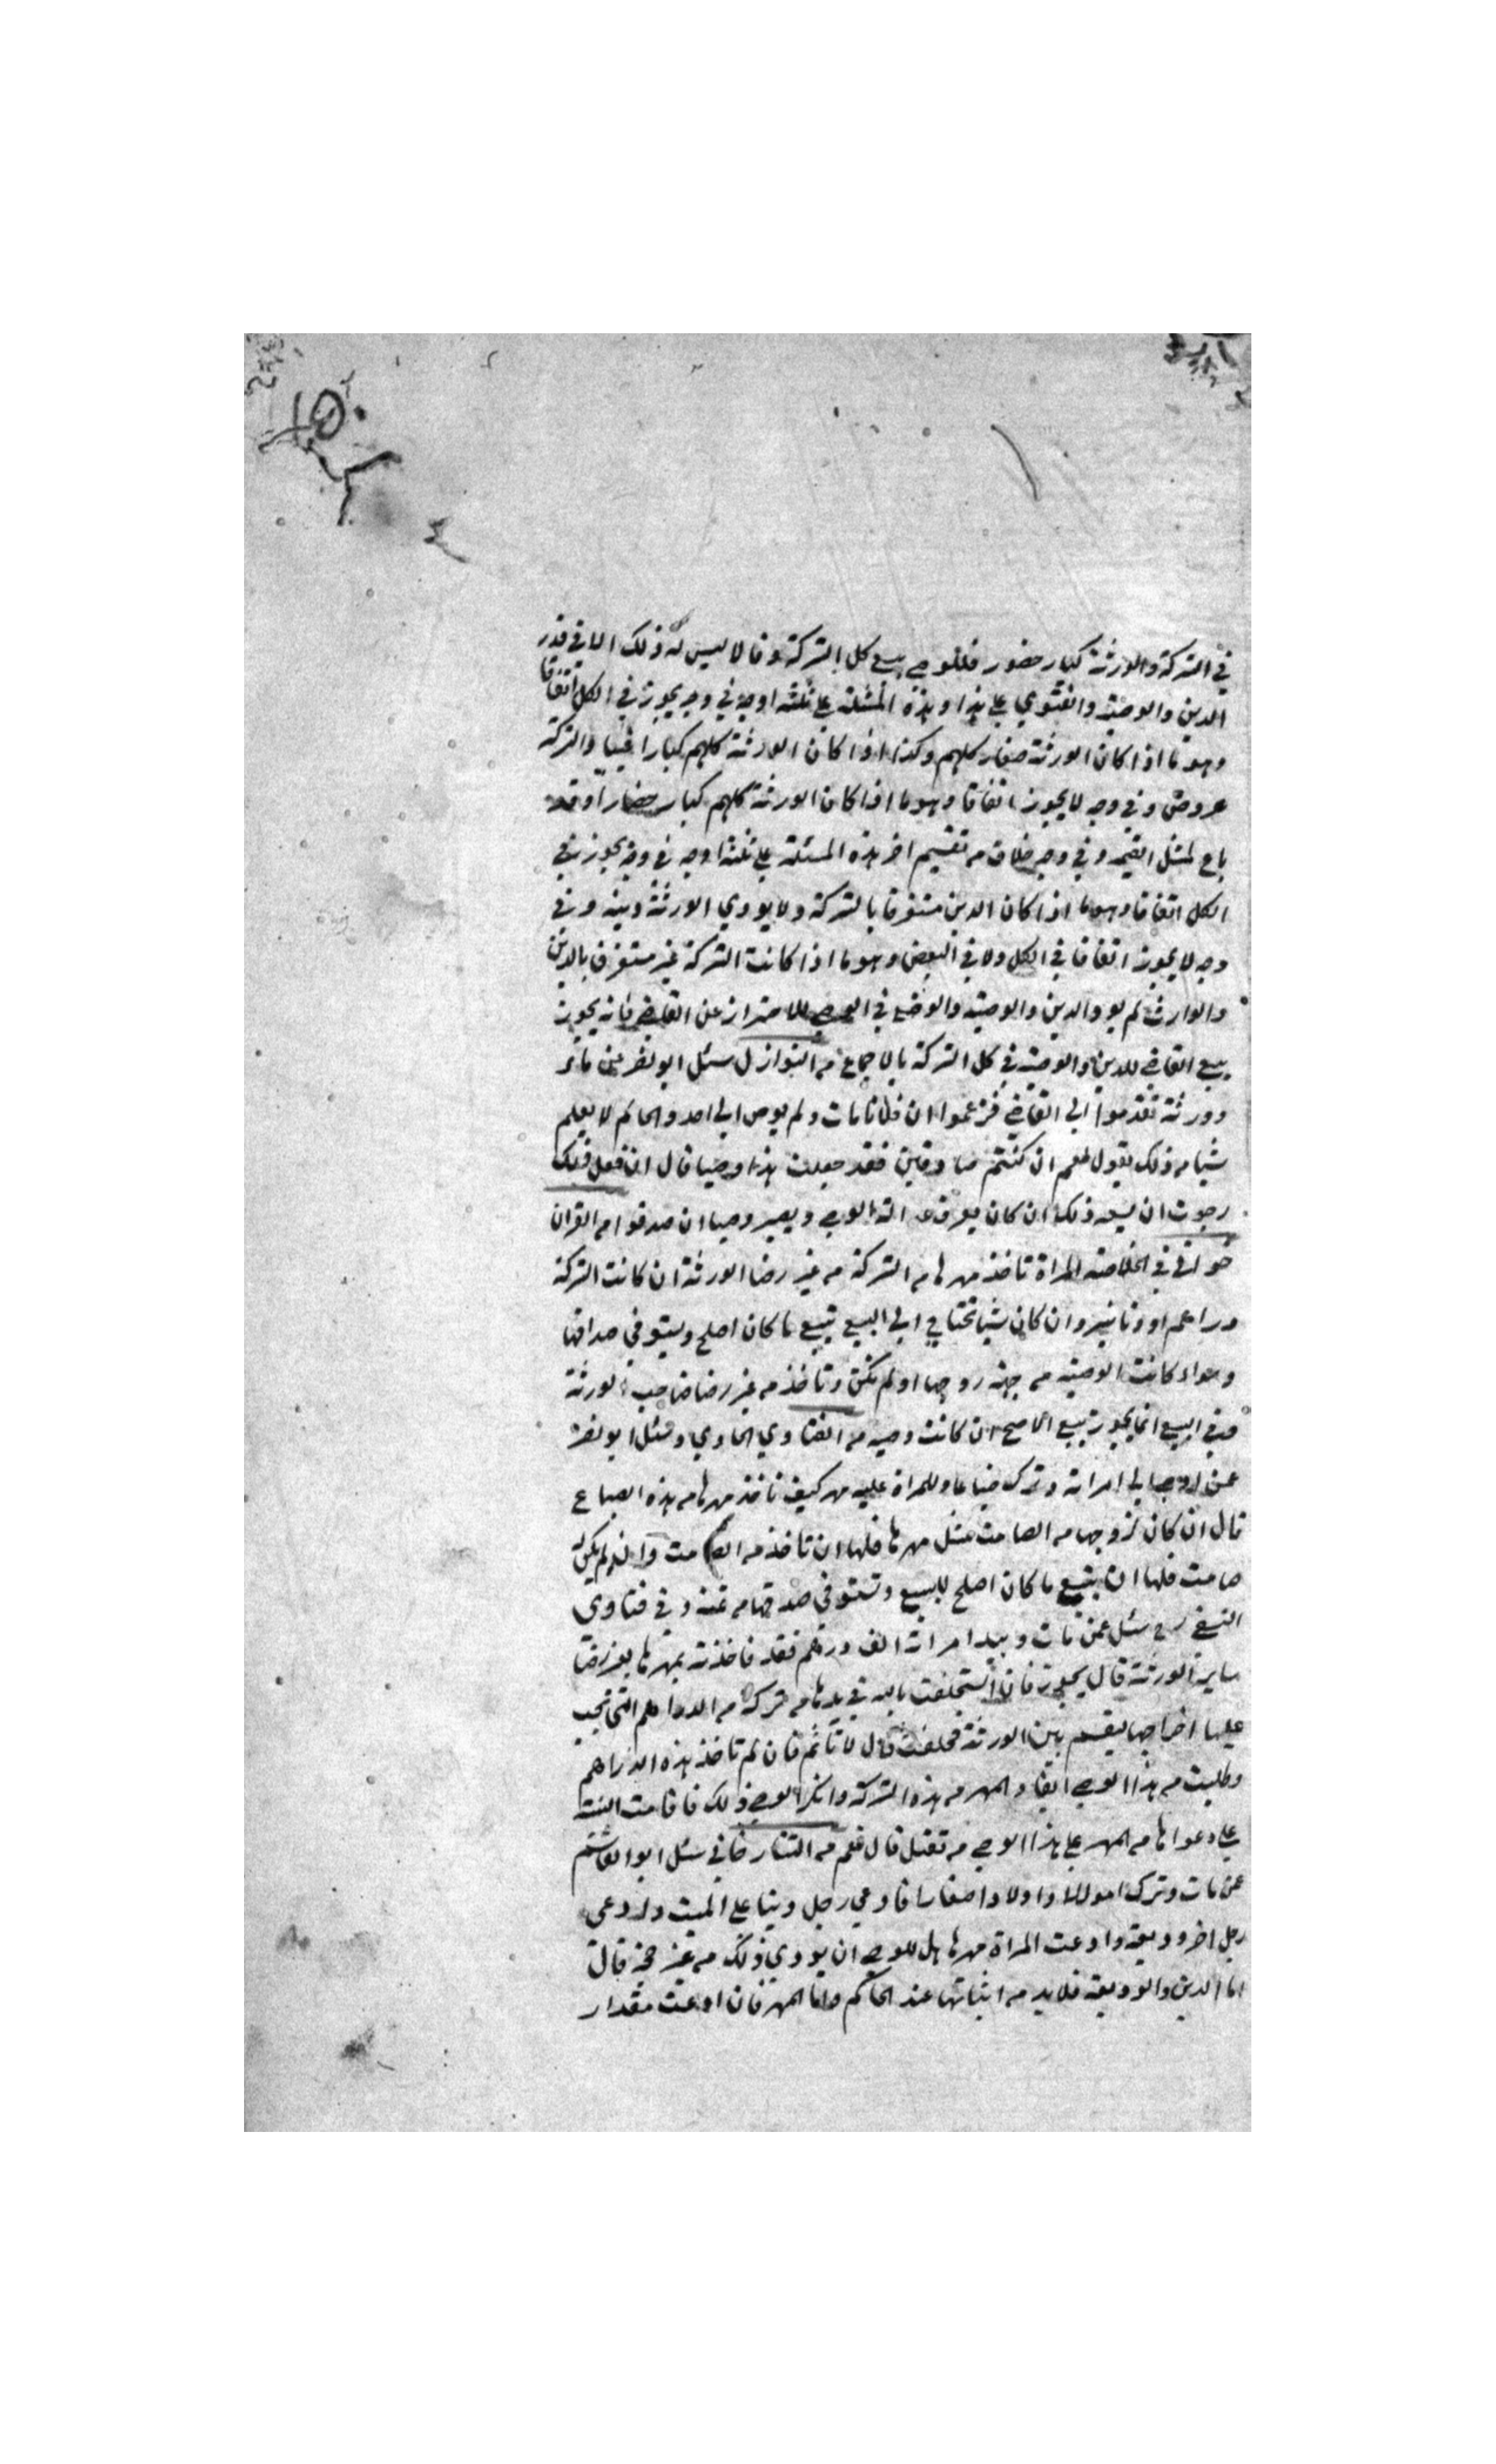 في التركة والورثة كبار حضور فللوصي بيع كل التركة وقالا ليس له ذلك الا في قدر
الدين والوصية والفتوي علي هذا وهذه المسئلة علي ثلثة اوجه في وجه يجوز في الكل اتفاقا
وهو ما اذا كان الورثة صغار كلهم وكذا اذا كان الورثة كلهم كبارا غيبا والتركة
عروض وفي وجه لا يجوز اتفاقا وهو ما اذا كان الورثة كلهم كبار حضارا وقد
باع لمثل القيمة وفي وجه خلاف من تقسيم اخر هذه المسئلة علي ثلثة اوجه في وجه يجوز في
الكل اتفاقا وهو ما اذا كان الدين مستغرقا بالتركة ولا يودي الورثة دينه وفي
وجه لا يجوز اتفاقا في الكل ولا في البعض وهو ما اذا كانت التركة غير مستغرق بالدين
والوارث لم يود الدين والوصية والوضع في الوصي للاحتراز عن القاضي فانه يجوز
بيع القاضي للدين والوصية في كل التركة بالاجماع من النوازل سئل ابو نصر عن
وورثة تقدموا الي القاضي فزعموا ان فلانا مات ولم يوص الي احد والحاكم لا يعلم
شيا من ذلك يقول لهم ان كنتم صادقين فقد جعلت هذا وصيا قال ان فعل ذلك
رجوت ان يسعه ذلك ان كان يعرف عدالة الوصي ويصير وصيا ان صدقوا من القران
خواني في الخلاصة المراة تاخذ مهرها من التركة من غير رضا الورثة ان كانت التركة
دراهم او دنانير وان كان شيا تحتاج الي البيع تبيع ما كان اصلح وتستوفي صداقها
وسواء كانت الوصية من جهة زوجها او لم تكن وتاخذ من غير رضا صاحب الورثة
وفي البيع انما يجوز تبيع الاصلح ان كانت وصية من الفتاوي الحاوي وسئل ابو نصر
عمن اوصي الي امراته وترك ضياعا وللمراة عليه مهر كيف تاخذ مهرها من هذه الضياع
قال ان كان لزوجها من الصامت مثل مهرها فلها ان تاخذ من الصامت وان لم يكن له
صامت فلها ان تبيع ما كان اصلح للبيع وتستوفي صدقها من ثمنه وفي فتاوي
النسفي رح سئل عمن مات وبيد امراته الف درهم فقد فاخذته بمهرها بغير رضا
ساير الورثة قال يجوز فان استحلفت بالله في يدها من تركة من الدراهم التي تجب
عليها اخراجها ليقسم بين الورثة فحلفت قال لا تاثم فان لم تاخذ هذه الدراهم
وطلبت من هذا الوصي ايفاء المهر من هذه التركة وانكر الوصي ذلك فاقامت البينة
علي دعواها من المهر علي هذا الوصي هل تقبل قال نعم من التتارخاني سئل ابو القاسم
عمن مات وترك اموالا واولادا صغارا فادعي رجل دينا علي الميت وادعي
رجل اخر وديعة وادعت المراة مهرها هل للوصي ان يودي ذلك من غير حجة قال
اما الدين والوديعة فلا بد من اثباتها عند الحاكم واما المهر فان ادعت مقدار